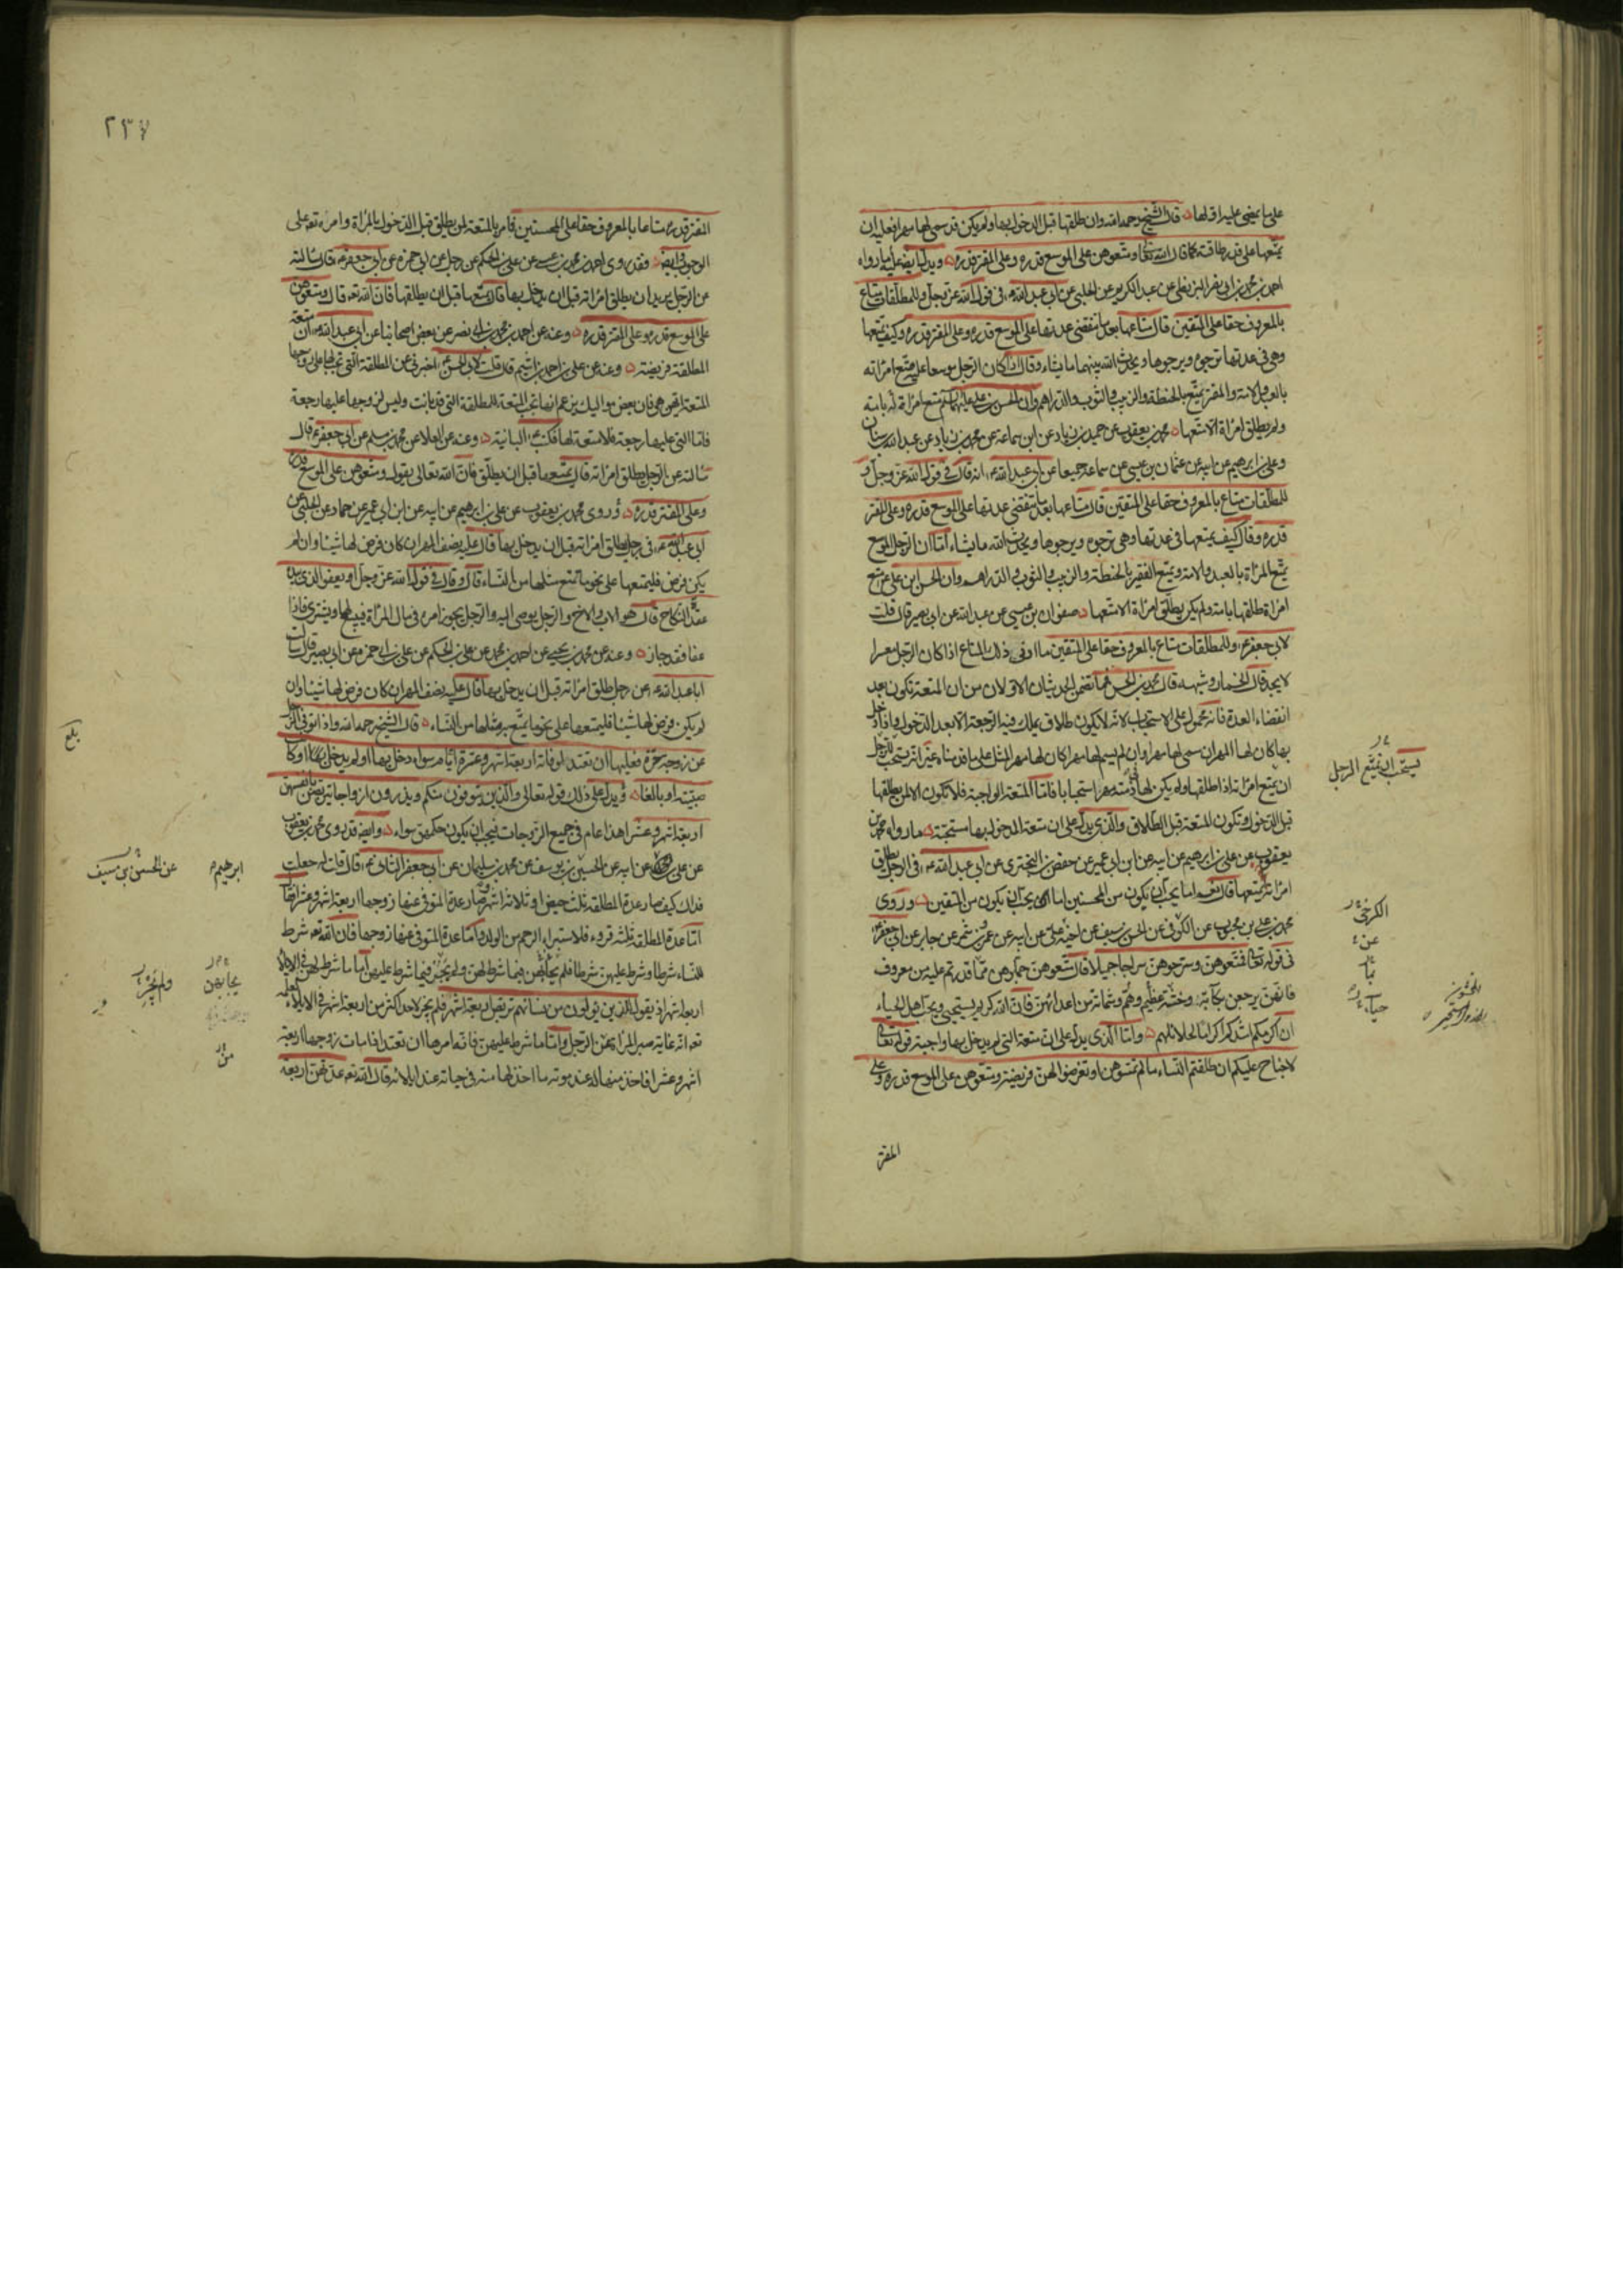 على ما يمضى عليه اقلها قال الشيخ رحمه الله وان طلقها قبل الدخول بها ولم يكن قد سمى لها مهرا فعليه ان
يمتعها على قدر طاقته كما قال الله تعالى ومتعوهن على الموسع قدره وعلى المقتر قدره ويدل ايضا على ما رواه
احمد بن محمد بن ابى نصر البزنطى عن عبد الكريم عن الحلبى عن ابى عبد الله ع فى قول الله عز وجل وللمطلقات متاع
بالمعروف حقا على المتقين قال متاعها بعد ما تنقضى عدتها على الموسع قدره وعلى المقتر قدره وكيف يمتعها
وهى فى عدتها ترجوه ويرجوها ويحدث الله بينهما ما يشاء وقال اذا كان الرجل موسعا عليه متع امراته
بالعبد والامة والمقتر يمتع بالحنطة والزبيب والثوب والدراهم وان الحسن بن على عليهما السلم متع امراة له بامة
ولم يطلق امراة الا متعها محمد بن يعقوب عن حميد بن زياد عن ابن سماعة عن محمد بن زياد عن عبد الله بن سنان
وعلى بن ابرهيم عن ابيه عن عثمان بن عيسى عن سماعة جميعا عن ابى عبد الله ع انه قال فى قول الله عز وجل و
للمطلقات متاع بالمعروف حقا على المتقين قال متاعها بعد ما تنقضى عدتها على الموسع قدره وعلى المقتر
قدره وقال كيف يمتعها فى عدتها وهى ترجوه ويرجوها ويحدث الله ما يشاء اما ان الرجل الموسع
يمتع المراة بالعبد والامة ويمتع الفقير بالحنطة والزبيب والثوب والدراهم وان الحسن ابن على ع متع
امراة طلقها بامة ولم يكن يطلق امراة الا متعها صفوان بن عيسى عن عبد الله عن ابى بصير قال قلت
لابى جعفر ع وللمطلقات متاع بالمعروف حقا على المتقين ما ادنى ذلك المتاع اذا كان الرجل معسرا
لا يجد قال الخمار وشبهه قال محمد بن الحسن فما تضمن الحديثان الاولان من ان المتعة تكون بعد
انقضاء العدة فانه محمول على الاستحباب لانه لا يكون طلاق يملك فيه الرجعة الا بعد الدخول واذا دخل
بها كان لها المهر ان سمى لها مهرا وان لم يسم لها مهرا كان لها مهر المثل على ما قدمناه غير انه يستحب للرجل
ان يمتع امراته اذا طلقها ولم يكن لها فى ذمته مهر استحبابا فاما المتعة الواجبة فلا تكون الا لمن يطلقها
قبل الدخول وتكون المتعة قبل الطلاق والذى يدل على ان متعة المدخول بها مستحبة ما رواه محمد بن
يعقوب عن على بن ابرهيم عن ابيه عن ابن ابى عمير عن حفص بن البخترى عن ابى عبد الله ع فى الرجل يطلق
امراته ايمتعها قال نعم اما يحب ان يكون من المحسنين اما يحب ان يكون من المتقين وروى
محمد بن على بن محبوب عن الكوفى عن الحسن بن سيف عن اخيه على عن ابيه عن عمرو بن شمر عن جابر عن ابى جعفر ع
فى قوله تعالى فمتعوهن وسرحوهن سراحا جميلا قال متعوهن جملوهن مما قدرتم عليه من معروف
فانهن يرجعن بكآبة وخشية عظيم وهم وشماتة من اعدائهن فان الله كريم يستحيى ويحب اهل الحياء
ان اكرمكم اشدكم اكراما لحلائلهم واما الذى يدل على ان متعة التى لم يدخل بها واجبة قوله تعالى
لا جناح عليكم ان طلقتم النساء ما لم تمسوهن او تفرضوا لهن فريضة ومتعوهن على الموسع قدره وعلى
المقتر
يستحب ان يمتع الرجل
الكرخى
عن
بما
حياء
٢٣٧
المقتر قدره متاعا بالمعروف حقا على المحسنين فامر بالمتعة لمن يطلق قبل الدخول بالمراة وامره تع على
الوجوب وايضا فقد روى احمد بن محمد بن عيسى عن على بن الحكم عن رجل عن ابى حمزة عن ابى جعفر ع قال سالته
عن الرجل يريد ان يطلق امراته قبل ان يدخل بها قال يمتعها قبل ان يطلقها فان الله تع قال ومتعوهن
على الموسع قدره وعلى المقتر قدره وعنه عن احمد بن محمد بن ابى نصر عن بعض اصحابنا عن ابى عبد الله ع ان متعة
المطلقة فريضة وعنه عن على بن احمد بن اشيم قال قلت لابى الحسن ع اخبرنى عن المطلقة التى تجب لها على زوجها
المتعة ايهن هى فان بعض مواليك يزعم انها تجب المتعة للمطلقة التى قد بانت وليس لزوجها عليها رجعة
فاما التى عليها رجعة فلا متعة لها فكتب ع البائنة وعنه عن العلا عن محمد بن مسلم عن ابى جعفر ع قال
سالته عن الرجل يطلق امراته قال يمتعها قبل ان يطلق فان الله تعالى يقول ومتعوهن على الموسع قدره
وعلى المقتر قدره وروى محمد بن يعقوب عن على بن ابرهيم عن ابيه عن ابن ابى عمير عن حماد عن الحلبى عن
ابى عبد الله ع فى رجل يطلق امراته قبل ان يدخل بها قال عليه نصف المهر ان كان فرض لها شيئا وان لم
يكن فرض فليمتعها على نحو ما يمتع مثلها من النساء قال وقال فى قول الله عز وجل او يعفو الذى بيده
عقدة النكاح قال هو الاب والاخ والرجل يوصى اليه والرجل يجوز امره فى مال المراة فيبيع لها ويشترى فاذا
عفا فقد جاز وعنه عن محمد بن يحيى عن احمد بن محمد عن على بن الحكم عن على بن ابى حمزة عن ابى بصير قال سالت
ابا عبد الله ع عن رجل طلق امراته قبل ان يدخل بها قال عليه نصف المهر ان كان فرض لها شيئا وان
لم يكن فرض لها شيئا فليمتعها على نحو ما يمتع به مثلها من النساء قال الشيخ رحمه الله واذا توفى الرجل
عن زوجة حرة فعليها ان تعتد لوفاته اربعة اشهر وعشرة ايام سواء دخل بها او لم يدخل بها او كانت
صبية او بالغا ويدل على ذلك قوله تعالى والذين يتوفون منكم ويذرون ازواجا يتربصن بانفسهن
اربعة اشهر وعشرا هذا عام فى جميع الزوجات فيجب ان يكون حكمهن سواء وايضا قد روى محمد بن يعقوب
عن على عن ابيه عن الحسين بن يوسف عن محمد بن سليمان عن ابى جعفر الثانى ع قال قلت له جعلت
فداك كيف صار عدة المطلقة ثلث حيض او ثلاثة اشهر وصار عدة المتوفى عنها زوجها اربعة اشهر وعشرا قال
اما عدة المطلقة ثلثة قروء فلاستبراء الرحم من الولد واما عدة المتوفى عنها زوجها فان الله تع شرط
للنساء شرطا وشرط عليهن شرطا فلم يحابهن فيما شرط لهن ولم يجر فيما شرط عليهن اما ما شرط لهن فى الايلاء
اربعة اشهر اذ يقول للذين يؤلون من نسائهم تربص اربعة اشهر فلم يجز لاحد اكثر من اربعة اشهر فى الايلاء لعلمه
تع انه غاية صبر المراة عن الرجل واما ما شرط عليهن فانه امرها ان تعتد اذا مات زوجها اربعة
اشهر وعشرا فاخذ منها له عند موته ما اخذ لها منه فى حياته عند ايلائه قال الله تع عدتهن اربعة
بلغ
ابرهيم
عن الحسين بن سيف
يحابهن
ولم يجر
من